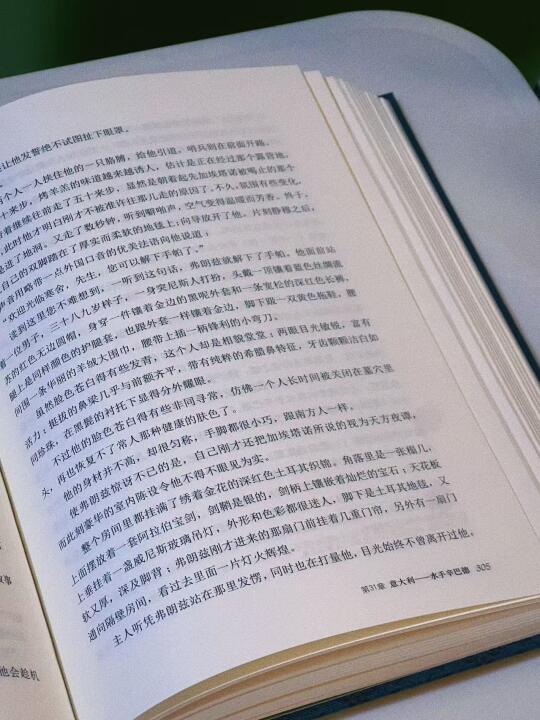 让他发誓绝不试图扯下眼罩。
个人一人挟住他的一只胳膊，给他引道。哨兵则在前面开路。
十来步，烤羊羔的味道越来越诱人，估计是正在经过那个露营地。
着继续往前走了五十来步，显然是朝着起先加埃塔诺被喝止的那个
此时他才明白刚才不被准许往那儿走的原因了。不久，氛围有些变化，
是进了地洞。又走了数秒钟，听到噼啪声，空气变得温暖而芳香。终于，
自己的双脚踏在了厚实而柔软的地毯上；向导放开了他。片刻静穆之后，
声音用略带一点外国口音的优美法语向他说道：
“欢迎光临寒舍，先生，您可以解下手帕了。”
读到这里您不难想到，一听到这句话，弗朗兹就解下了手帕。他面前站
着一位男子，三十八九岁样子，一身突尼斯人打扮，头戴一顶镶着蓝色丝绸流
苏的红色无边圆帽，身穿一件镶着金边的黑呢外套和一条宽松的深红色长裤，
腿上是同样颜色的护腿套，也跟外套一样镶着金边，脚下趿一双黄色拖鞋，腰
间围一条华丽的羊绒大围巾，腰带上插一柄锋利的小弯刀。
虽然脸色苍白得有些发青，这个人却是相貌堂堂；两眼目光敏锐，富有
活力；挺拔的鼻梁几乎与前额齐平，带有纯粹的希腊鼻特征，牙齿颗颗洁白如
同珍珠，在黑髭的衬托下显得分外耀眼。
不过他的脸色苍白得有些非同寻常，仿佛一个人长时间被关闭在墓穴里
头，再也恢复不了常人那种健康的肤色了。
他的身材并不高，却很匀称，手脚都很小巧，跟南方人一样。
使弗朗兹惊讶不已的是，自己刚才还把加埃塔诺所说的视为天方夜谭，
而此刻豪华的室内陈设令他不得不眼见为实。
整个房间里都挂满了绣着金花的深红色土耳其织锦。角落里是一张榻几，
上面摆放着一套阿拉伯宝剑，剑鞘是银的，剑柄上镶嵌着灿烂的宝石；天花板
上垂挂着一盏威尼斯玻璃吊灯，外形和色彩都很迷人，脚下是土耳其地毯，又
软又厚，深及脚背；弗朗兹刚才进来的那扇门前挂着几重门帘，另外有一扇门
通向隔壁房间，看过去里面一片灯火辉煌。
主人听凭弗朗兹站在那里发愣，同时也在打量他，目光始终不曾离开过他。
第31章 意大利——水手辛巴德 305
故事
他会趁机